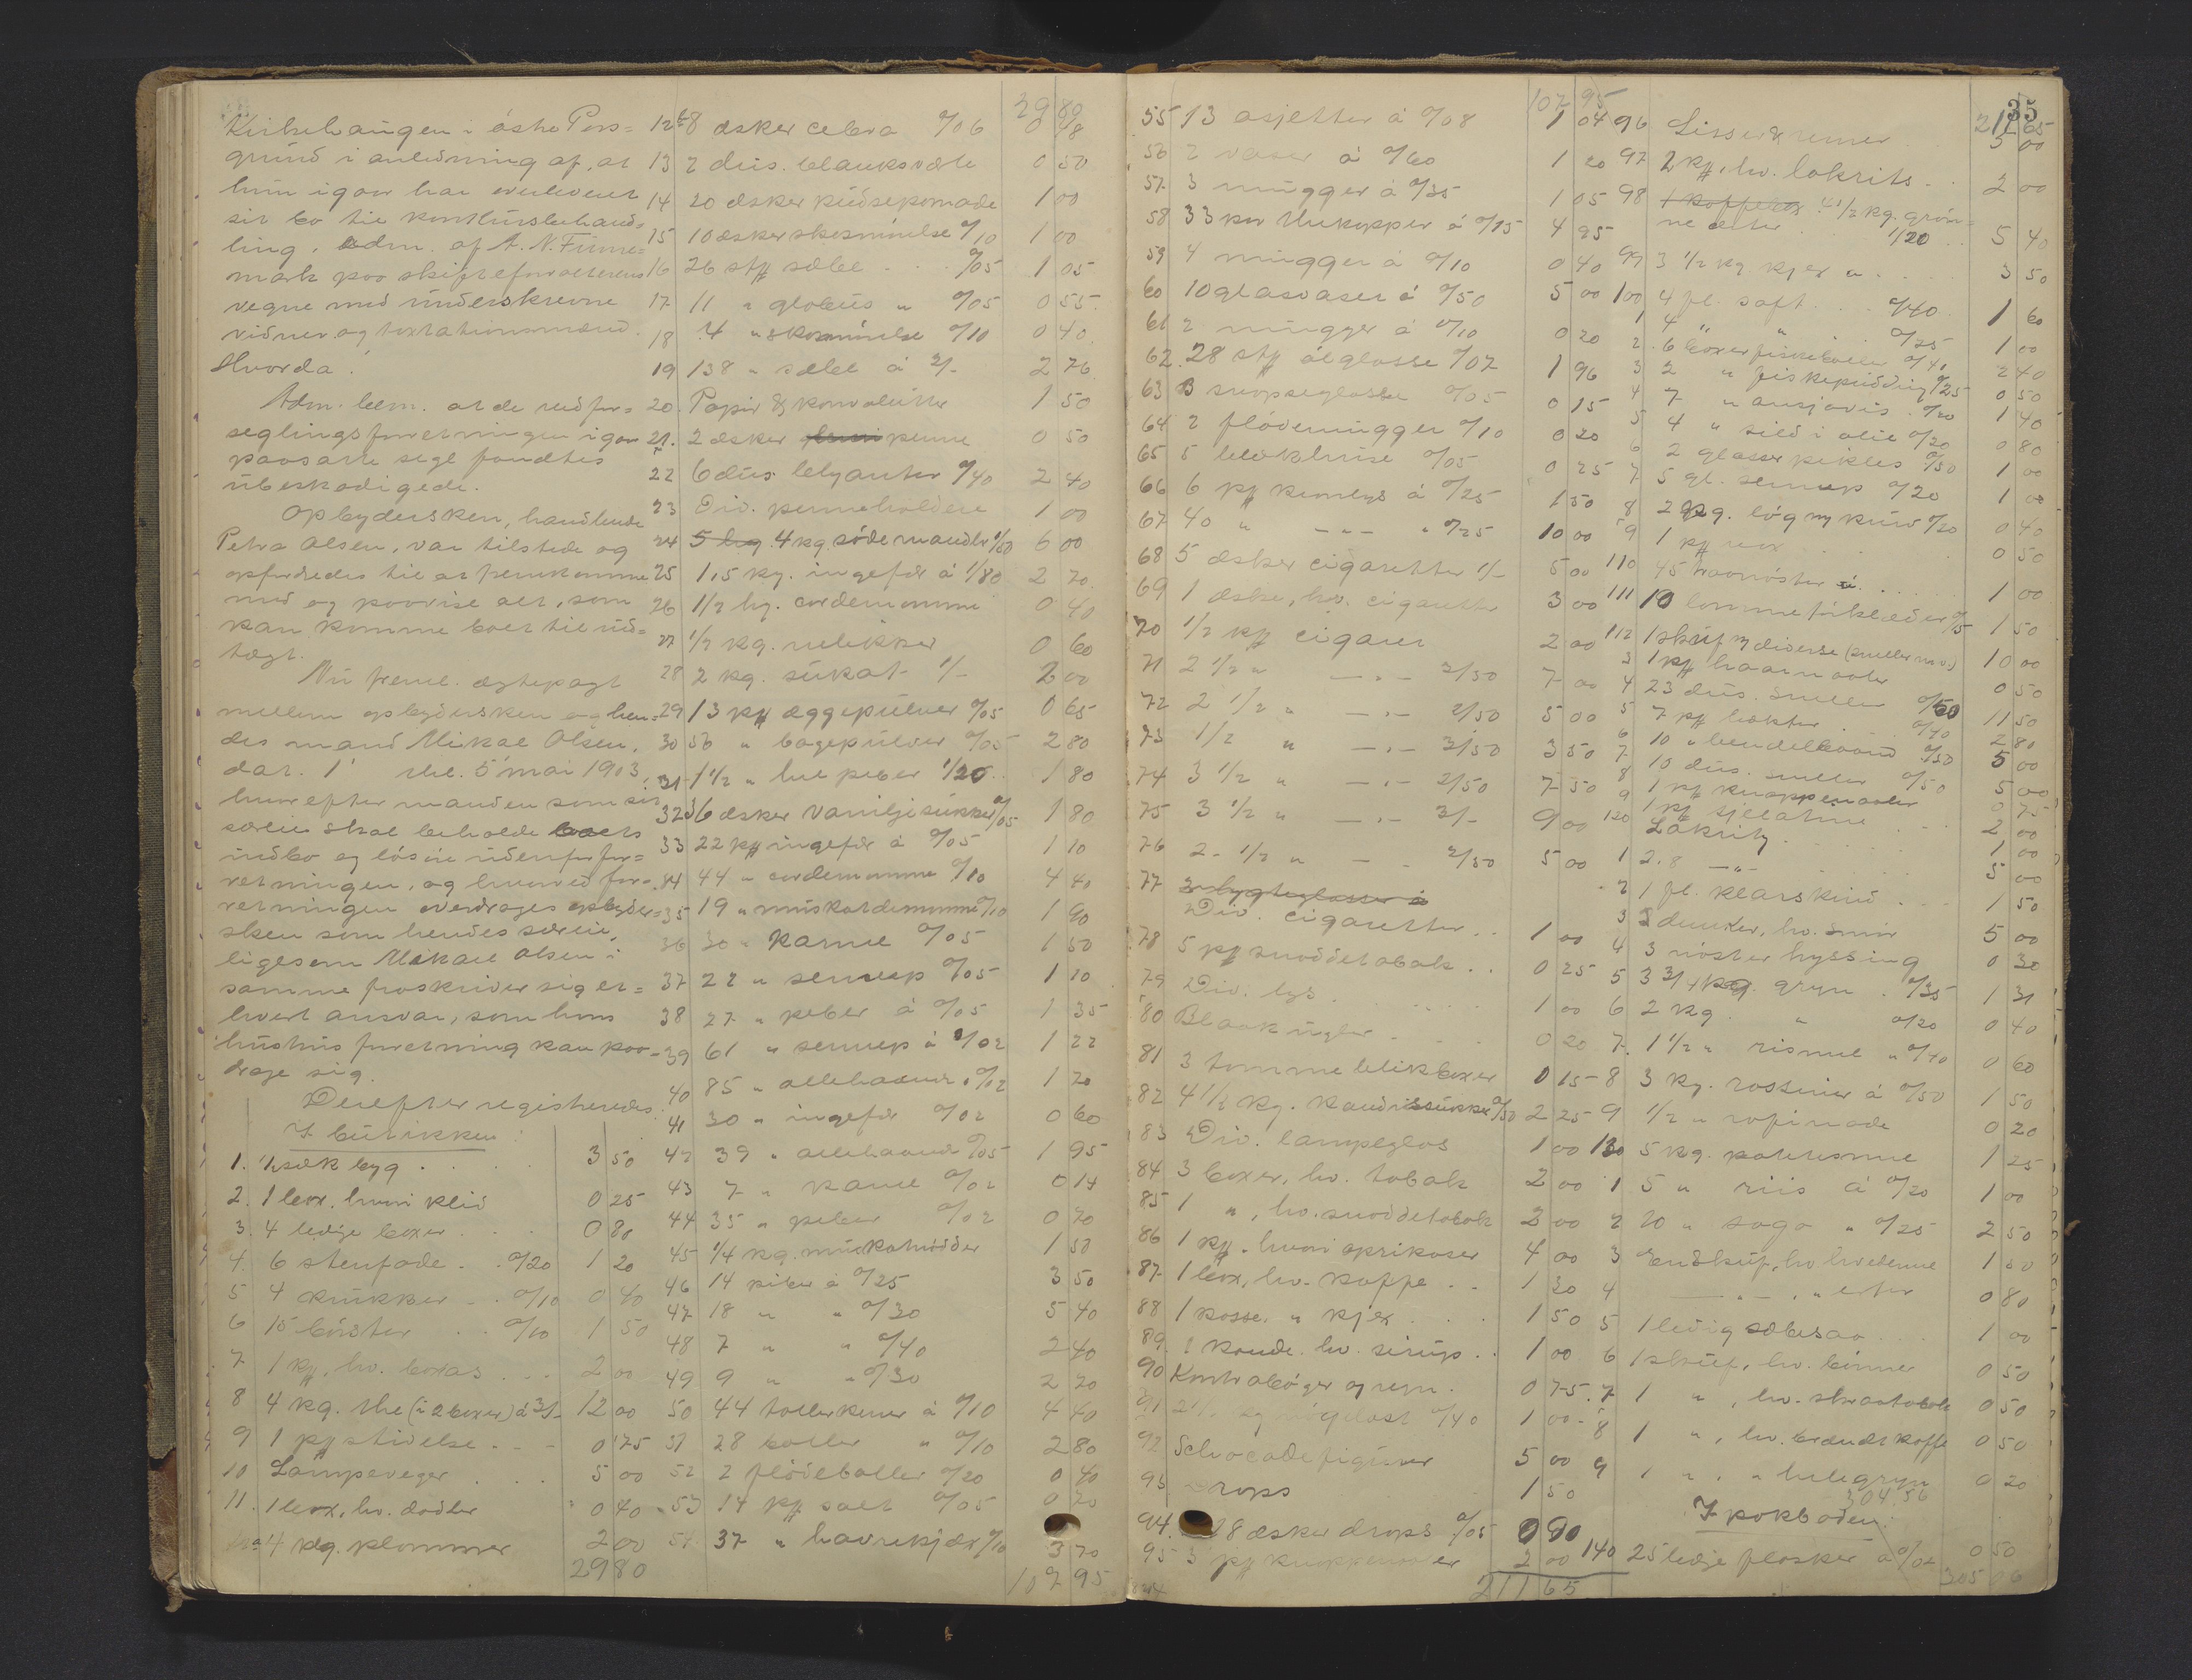 Kirkehaugen i östre Pors=
grund i anledning af, at
hun igaar har overleveret
sit bo til konkursbehand=
ling. Adm. af A. N. Finne=
mark paa skifteforvalterens
vegne med underskrevne
vidner og taxtationsmænd.
Hvorda:
Adm. bem. at de ved for=
seglingsforretningen igaar
paasatte segl fandtes
ubeskadigede.
Opbydersken, handlende
Petra Olsen, var tilstede og
opfordredes til at fremkomme
med og paavise alt, som
kan komme boet til ind=
tægt.
Nu freml. ægtepagt
mellem opbydersken og hen=
des mand Mikal Olsen,
dat. 1' thl. 5' mai 1903,
hvorefter manden som sit
særeie skal beholde boets
indbo og lösöre udenfor for=
retningen, og hvorved for=
retningen overdrages opbyder=
sken som hendes særeie,
ligesom Mikael Olsen i
samme fraskriver sig et=
hvert ansvar, som hans
hustrus forretning kan paa=
drage sig.
Derefter registreredes:
I butikken:
1. ½ sæk byg . . . 3 50
2. 1 box. hvori klid 0 25
3. 4 ledige boxer . . . 0 80
4. 6 stenfade . . 0/20 1 20
5 4 krukker . . 0/10 0 40
6 15 börster . . 0/10 1 50
7 1 pk, hv. boras . . . 2 00
8 4 kg. the (i 2 boxer) á 3/- 12 00
9 1 pk stivelse . . - 0 75
10 Lampeveger . . . 5 00
11. 1 box, hv. dadler 0 40
12a 4 kg. plommer 2 00
29 80
29 80
12b 8 æsker cebra 0/06 0 48
13 2 dus. blanksværte 0 50
14 20 æsker pudsepomade 1 00
15 10 æsker skosmörelse 0/10 1 00
16 26 stk sæbe . . . 0/05 1 05
17 11 " globus " 0/05 0 55
18 4 " skosmörelse 0/10 0 40
19 138 " sæbe á 2/- 2 76
20. Papir & konvolutter 1 50
21. 2 æsker penne 0 50
22 6 dus blyanter 0/40 2 40
23 Div. penneholdere 1 00
24 5 kg 4 kg. söde mandler 1/50 6 00
25 1,5 kg. ingefær á 1/80 2 70
26 1/2 kg. cardemomme 0 40
27 1/2 kg. nelikker 0 60
28 2 kg. sukat 1/- 2 00
29 13 pk æggepulver 0/05 0 65
30 56 " bagepulver 0/05 2 80
31 1 1/2 " hel peber 1/20 1 80
32 36 æsker vaniljesukker 0/05 1 80
33 22 pk ingefær á 0/05 1 10
34 44 " cardemomme 0/10 4 40
35 19 " muskatblomme 0/10 1 90
36 30 " kanel 0/05 1 50
37 22 " sennep 0/05 1 10
38 27 " peber á 0/05 1 35
39 61 " sennep á 0/02 1 22
40 85 " allehaande 0/02 1 70
41 30 " ingefær 0/02 0 60
42 39 " allehaande 0/05 1 95
43 7 " kanel 0/02 0 14
44 35 " peber 0/02 0 70
45 1/4 kg. muskatnödder 1 50
46 14 piber á 0/25 3 50
47 18 " " 0/30 5 40
48 7 " " 0/40 2 40
49 9 " " 0/30 2 70
50 44 tallerkener á 0/10 4 40
51 28 boller " 0/10 2 80
52 2 flödeboller 0/20 0 40
53 14 pk salt 0/05 0 70
54 37 " havrekjæx 0/10 3 70
107 95
107 95
55 13 asjetter á 0/08 1 04
56 2 vaser á 0/60 1 20
57 3 mugger á 0/35 1 05
58 33 par thekopper á 0/15 4 95
59 4 mugger á 0/10 0 40
60 10 glasvaser á 0/50 5 00
61 2 mugger á 0/10 0 20
62. 28 stk ölglasse 0/07 1 96
63 3 snapseglasse 0/05 0 15
64 2 flödemugger 0/10 0 20
65 5 blækhuse 0/05 0 25
66 6 pk kronlys á 0/25 1 50
67 40 " -"- " 0/25 10 00
68 5 æsker cigaretter 1/- 5 00
69 1 æske, hv. cigaretter 3 00
70 1/2 pk cigarer 2 00
71 2 1/2 " -"- 2/50 7 00
72 2 1/2 " -"- 2/50 5 00
73 1/2 " -"- 3/50 3 50
74 3 1/2 " -"- 2/50 7 50
75 3 1/2 " -"- 3/- 9 00
76 2 1/2 " - - 2/50 5 00
77 3 lygteglasse á
Div. cigaretter . . 1 00
78 5 pk snoddetobak . . 0 25
79 Div. lys . . . 1 00
80 Blaakugler . . . 0 20
81 3 tomme blikboxer 0 15
82 4 1/2 kg. kandissukker 0/50 2 25
83 Div. lampeglas 1 00
84 3 boxer, hv. tobak 2 00
85 1 ", hv. snoddetobak 2 00
86 1 pk. hvori aprikoser 4 00
87 1 box, hv. kaffe . . 1 30
88 1 kasse. " kjex . . . 1 50
89. 1 kande. hv. sirup . . 1 00
90 Kontraböger og regn. 0 75
91 0/40 1 00
92 Schocoladefigurer 5 00
93 Drops 1 50
94. 18 æsker drops 0/05 0 90
95 3 pk 2 00
211 65
35
211 65
96 Lisser & remer 5 00
97 2 pk, hv. lakrits . . 2 00
98 1 kaffebox 4 1/2 kg. grön=
ne erter . . 1/20 . . 5 40
99 3 1/2 kg. kjex " . . . 3 50
100 4 fl. saft . . 0/40 1 60
1 4 " " . . 0/25 1 00
2 6 boxer fiskeboller 0/40 2 40
3 2 " fiskepudding 0/25 0 50
4 7 " ansjovis . 0/20 1 40
5 4 " sild i olie 0/20 0 80
6 2 glasser pikles 0/50 1 00
7 5 gl. sennep 0/20 1 00
8 2 kg. lög og 0/20 0 40
9 1 pk . . . 0 50
110 45 á . . . 1 00
111 10 lommetörklæder 0/15 1 50
112 1 skuf og diverse (sneller m.v.) 10 00
3 1 pk haarnaaler 0 50
4 23 dus. sneller 0/50 11 50
5 7 pk hækter 0/40 2 80
6 10 " bendelbaand 0/50 5 00
7 10 dus. sneller 0/50 5 00
8 1 pk knappenaaler 0 75
9 1 pk 2 00
120 Lakrits . . . 1 00
1 2.8 -"- 5 00
2 1 fl. klarskind . . . 1 50
3 3 dunker, hv. smör 5 00
4 3 nöster hyssing 0 30
5 3 3/4 kg. gryn . 0/35 1 31
6 2 kg. " 0/20 0 40
7. 1 1/2 " rismel " 0/40 0 60
8 3 kg. rosiner á 0/50 1 50
9 1/2 " rafinade 0 20
130 5 kg. potetesmel 1 25
1 5 " riis á 0/20 1 00
2 20 " sago " 0/25 2 50
3 En skuf, hv. hvedemel 1 50
4 -"-, " erter 0 80
5 1 ledig sæbesaa . . . 1 00
6 1 skuf, hv. bönner 0 50
7 1 ", hv. skraatobak 0 50
8 1 ", hv. brændt kaffe 0 50
9 1 ", " helegryn 0 20
304 56
I pakboden:
140 25 ledige flasker á 0/02 0 50
305 06